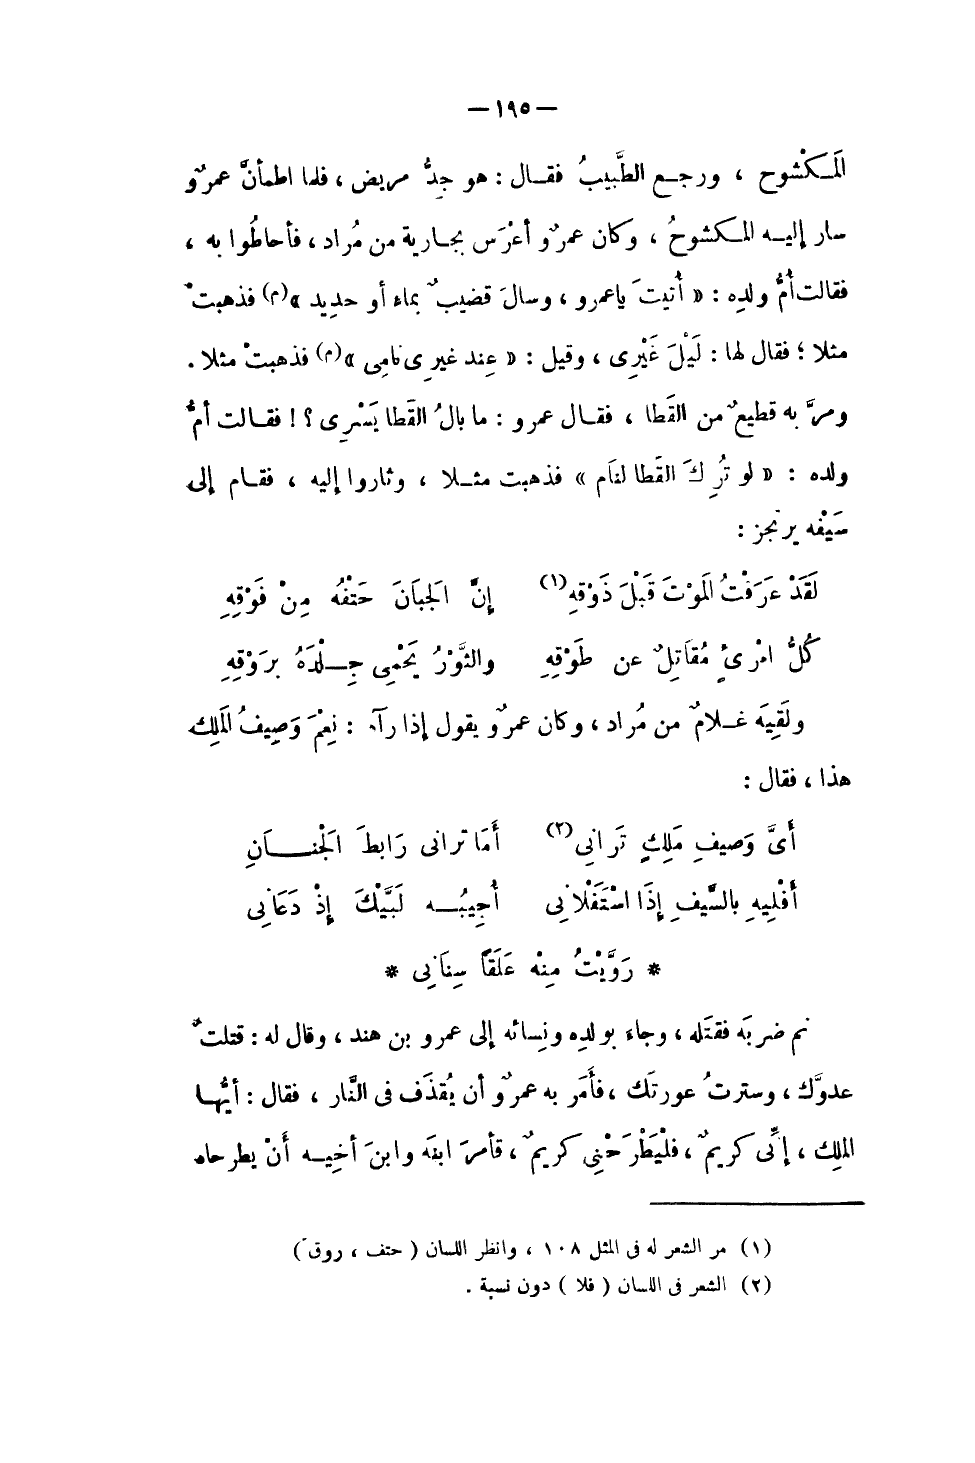 — ١٩٥ —
المَـكْشوح ، ورجـع الطَّبيبُ فقـال : هو جِدُّ مريض ، فلما اطمأنَّ عمرٌو
سار إليـه المـكشوحُ ، وكان عمرٌو أعْرَس بجـارية من مُراد ، فأحاطُوا به ،
فقالت أُمُّ ولدِه : « أُتيتَ ياعمرو ، وسالَ قضيبٌ بماء أو حديد »(م) فذهبتْ
مثلا ؛ فقال لها : لَيْلَ غَيْرِى ، وقيل : « عِند غيرِى نامِى »(م) فذهبتْ مثلا .
ومرَّ به قطيعٌ من القَطا ، فقـال عمرو : ما بالُ القَطا يَسْرِى ؟ ! فقـالت أمُّ
ولده : « لو تُرِكَ القَطا لنَام » فذهبت مثـلا ، وثاروا إليه ، فقـام إلى
سَيْفه يرتجز :
لَقَدْ عَرَفْتُ المَوْتَ قَبْلَ ذَوْقهِ(١) إنَّ الجَبَانَ حَتْفُه مِنْ فَوْقِهِ
كُلُّ امْرئٍ مُقَاتِلٌ عن طَوْقِهِ والثَّوْرُ يَحْمِى جِـلْدَهُ برَوْقِهِ
ولَقِيَه غـلامٌ من مُراد ، وكان عمرٌو يقول إذا رآه : نِعْمَ وَصِيفُ المَلِك
هذا ، فقال :
أَىَّ وَصيفِ مَلِكٍ تَرانِى(٢) أَمَا ترانى رَابطَ الجْنـانِ
أَفْلِيهِ بالسَّيفِ إذَا اسْتَفْلانِى أُجِيبُـه لَبَّيْكَ إذْ دَعَانِى
* رَوَّيْتُ مِنْه عَلَقًا سِنَانِى *
ثم ضربَه فقتَله ، وجاء بولدِه ونِسائه إلى عمرو بن هند ، وقال له : قتلتُ
عدوَّك ، وسترتُ عورتَك ، فأَمَر به عمرٌو أن يُقذَف فى النَّار ، فقال : أيُّهـا
الملِك ، إنِّى كريمٌ ، فلْيَطْرَحْنِى كريمٌ ، فأمرَ ابنَه وابنَ أخِيـه أَنْ يطرحاه
(١) مر الشعر له فى المثل ١٠٨ ، وانظر اللسان ( حتف ، روق )
(٢) الشعر فى اللسان ( فلا ) دون نسبة .